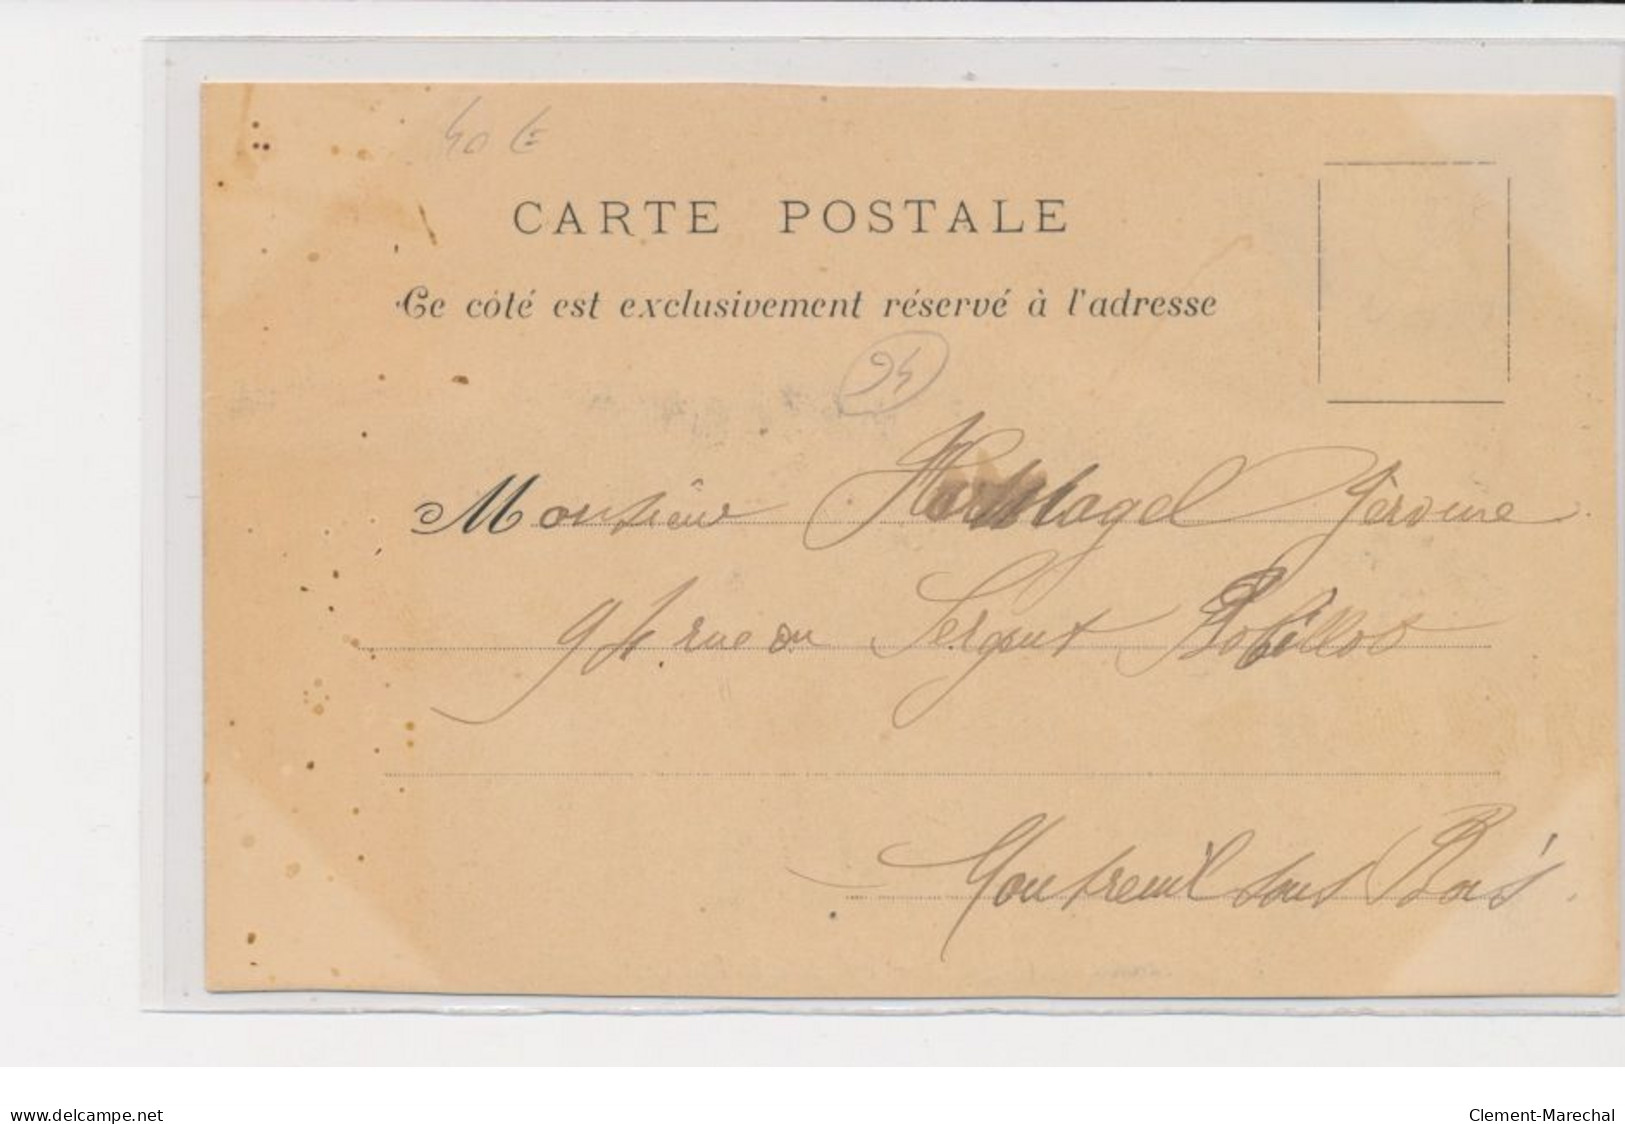 40 €
CARTE POSTALE
Ce côté est exclusivement réservé à l'adresse
94
Monsieur Jérome
94 rue du Sergent Bobillot
Montreuil sous Bois
www.delcampe.net
Clement-Marechal